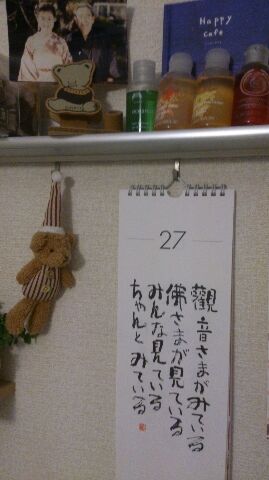 Happy
Cafe
27
觀音さまがみている
佛さまが見ている
みんな見ている
ちゃんとみている